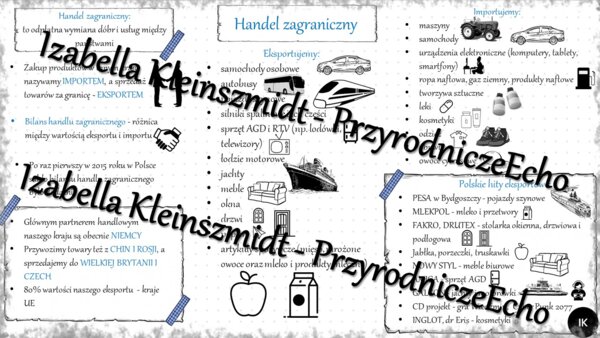 Handel zagraniczny:
to odpłatna wymiana dóbr i usług między
państwami
Zakup produktów
nazywamy IMPORTEM, a sprzedaż
towarów za granicę - EKSPORTEM
Bilans handlu zagranicznego - różnica
między wartością eksportu i importu
Po raz pierwszy w 2015 roku w Polsce
bilansu handlu zagranicznego
Głównym partnerem handlowym
naszego kraju są obecnie NIEMCY
Przywozimy towary też z CHIN I ROSJI, a
sprzedajemy do WIELKIEJ BRYTANII I
CZECH
80% wartości naszego eksportu - kraje
UE
Handel zagraniczny
Eksportujemy:
samochody osobowe
autobusy
silniki spalinowe części
sprzęt AGD i RTV (np. lodówki,
telewizory)
łodzie motorowe
jachty
meble
okna
drzwi
artykuły mrożone
owoce oraz mleko i produkty
Importujemy:
maszyny
samochody
urządzenia elektroniczne (komputery, tablety,
smartfony)
ropa naftowa, gaz ziemny, produkty naftowe
tworzywa sztuczne
leki
kosmetyki
odzież
owoce
Polskie hity eksportowe
PESA w Bydgoszczy - pojazdy szynowe
MLEKPOL - mleko i przetwory
FAKRO, DRUTEX - stolarka okienna, drzwiowa i
podłogowa
Jabłka, porzeczki, truskawki
NOWY STYL - meble biurowe
sprzęt AGD
CD projekt - gra Punk 2077
INGLOT, dr Eris - kosmetyki
Izabella Kleinszmidt - PrzyrodniczeEcho
Izabella Kleinszmidt - PrzyrodniczeEcho
IK